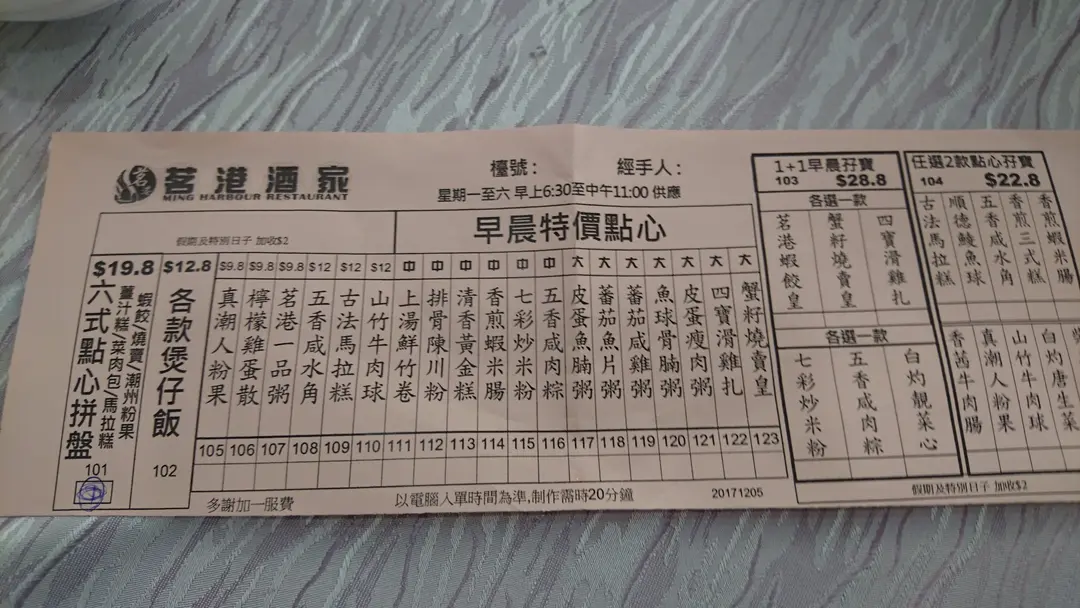 茗港酒家
MING HARBOUR RESTAURANT
檯號：
經手人：
星期一至六 早上6:30至中午11:00 供應
假期及特別日子 加收$2
早晨特價點心
$19.8
六式點心拼盤
蝦餃/燒賣/潮州粉果
薑汁糕/菜肉包/馬拉糕
101
$12.8
各款煲仔飯
102
$9.8 真潮人粉果 105
$9.8 檸檬雞蛋散 106
$9.8 茗港一品粥 107
$12 五香咸水角 108
$12 古法馬拉糕 109
$12 山竹牛肉球 110
中 上湯鮮竹卷 111
中 排骨陳川粉 112
中 清香黃金糕 113
中 香煎蝦米腸 114
中 七彩炒米粉 115
中 五香咸肉粽 116
大 皮蛋魚腩粥 117
大 蕃茄魚片粥 118
大 蕃茄咸雞粥 119
大 魚球骨腩粥 120
大 皮蛋瘦肉粥 121
大 四寶滑雞扎 122
大 蟹籽燒賣皇 123
多謝加一服費
以電腦入單時間為準,制作需時20分鐘
20171205
1+1早晨孖寶
103 $28.8
各選一款
茗港蝦餃皇
蟹籽燒賣皇
四寶滑雞扎
各選一款
七彩炒米粉
五香咸肉粽
白灼靚菜心
任選2款點心孖寶
104 $22.8
古法馬拉糕
順德鯪魚球
五香咸水角
香煎三式糕
香煎蝦米腸
香茜牛肉腸
真潮人粉果
山竹牛肉球
白灼唐生菜
假期及特別日子 加收$2